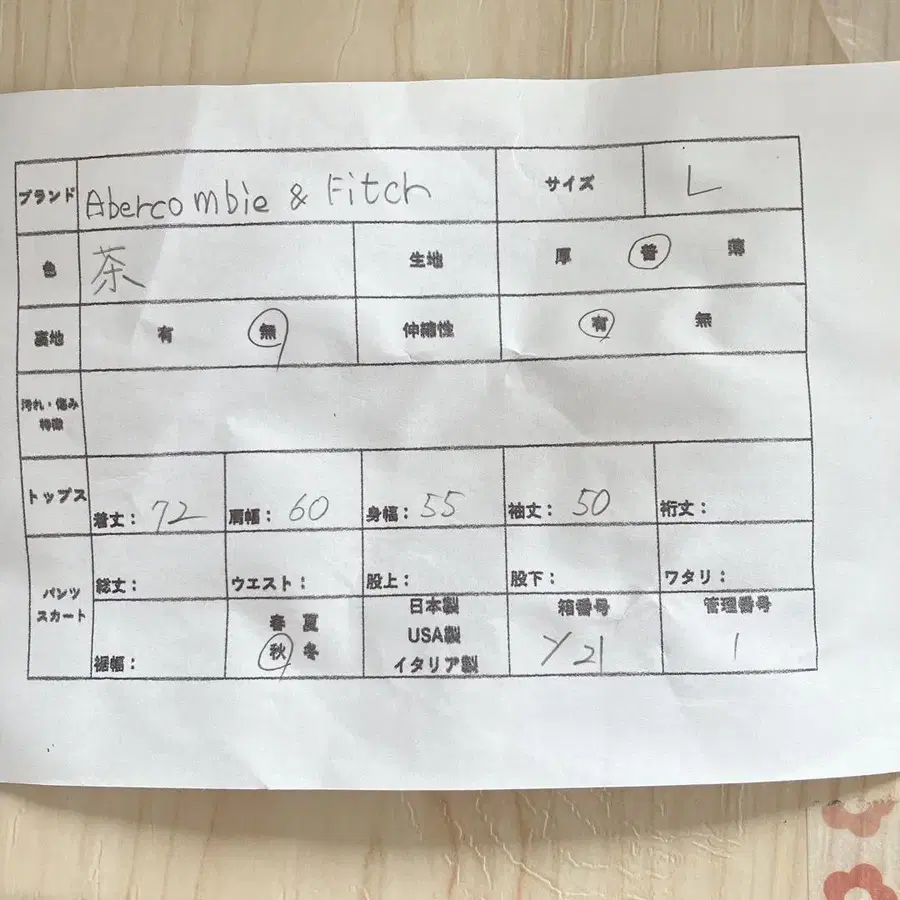 ブランド Abercombie & Fitch サイズ L
色 茶 生地 厚 普 薄
裏地 有 無 伸縮性 有 無
汚れ・傷み
特徴
トップス 着丈： 72 肩幅： 60 身幅： 55 袖丈： 50 裄丈：
パンツ
スカート
総丈： ウエスト： 股上： 股下： ワタリ：
裾幅：
春 夏
秋 冬
日本製
USA製
イタリア製
箱番号
Y21
管理番号
1